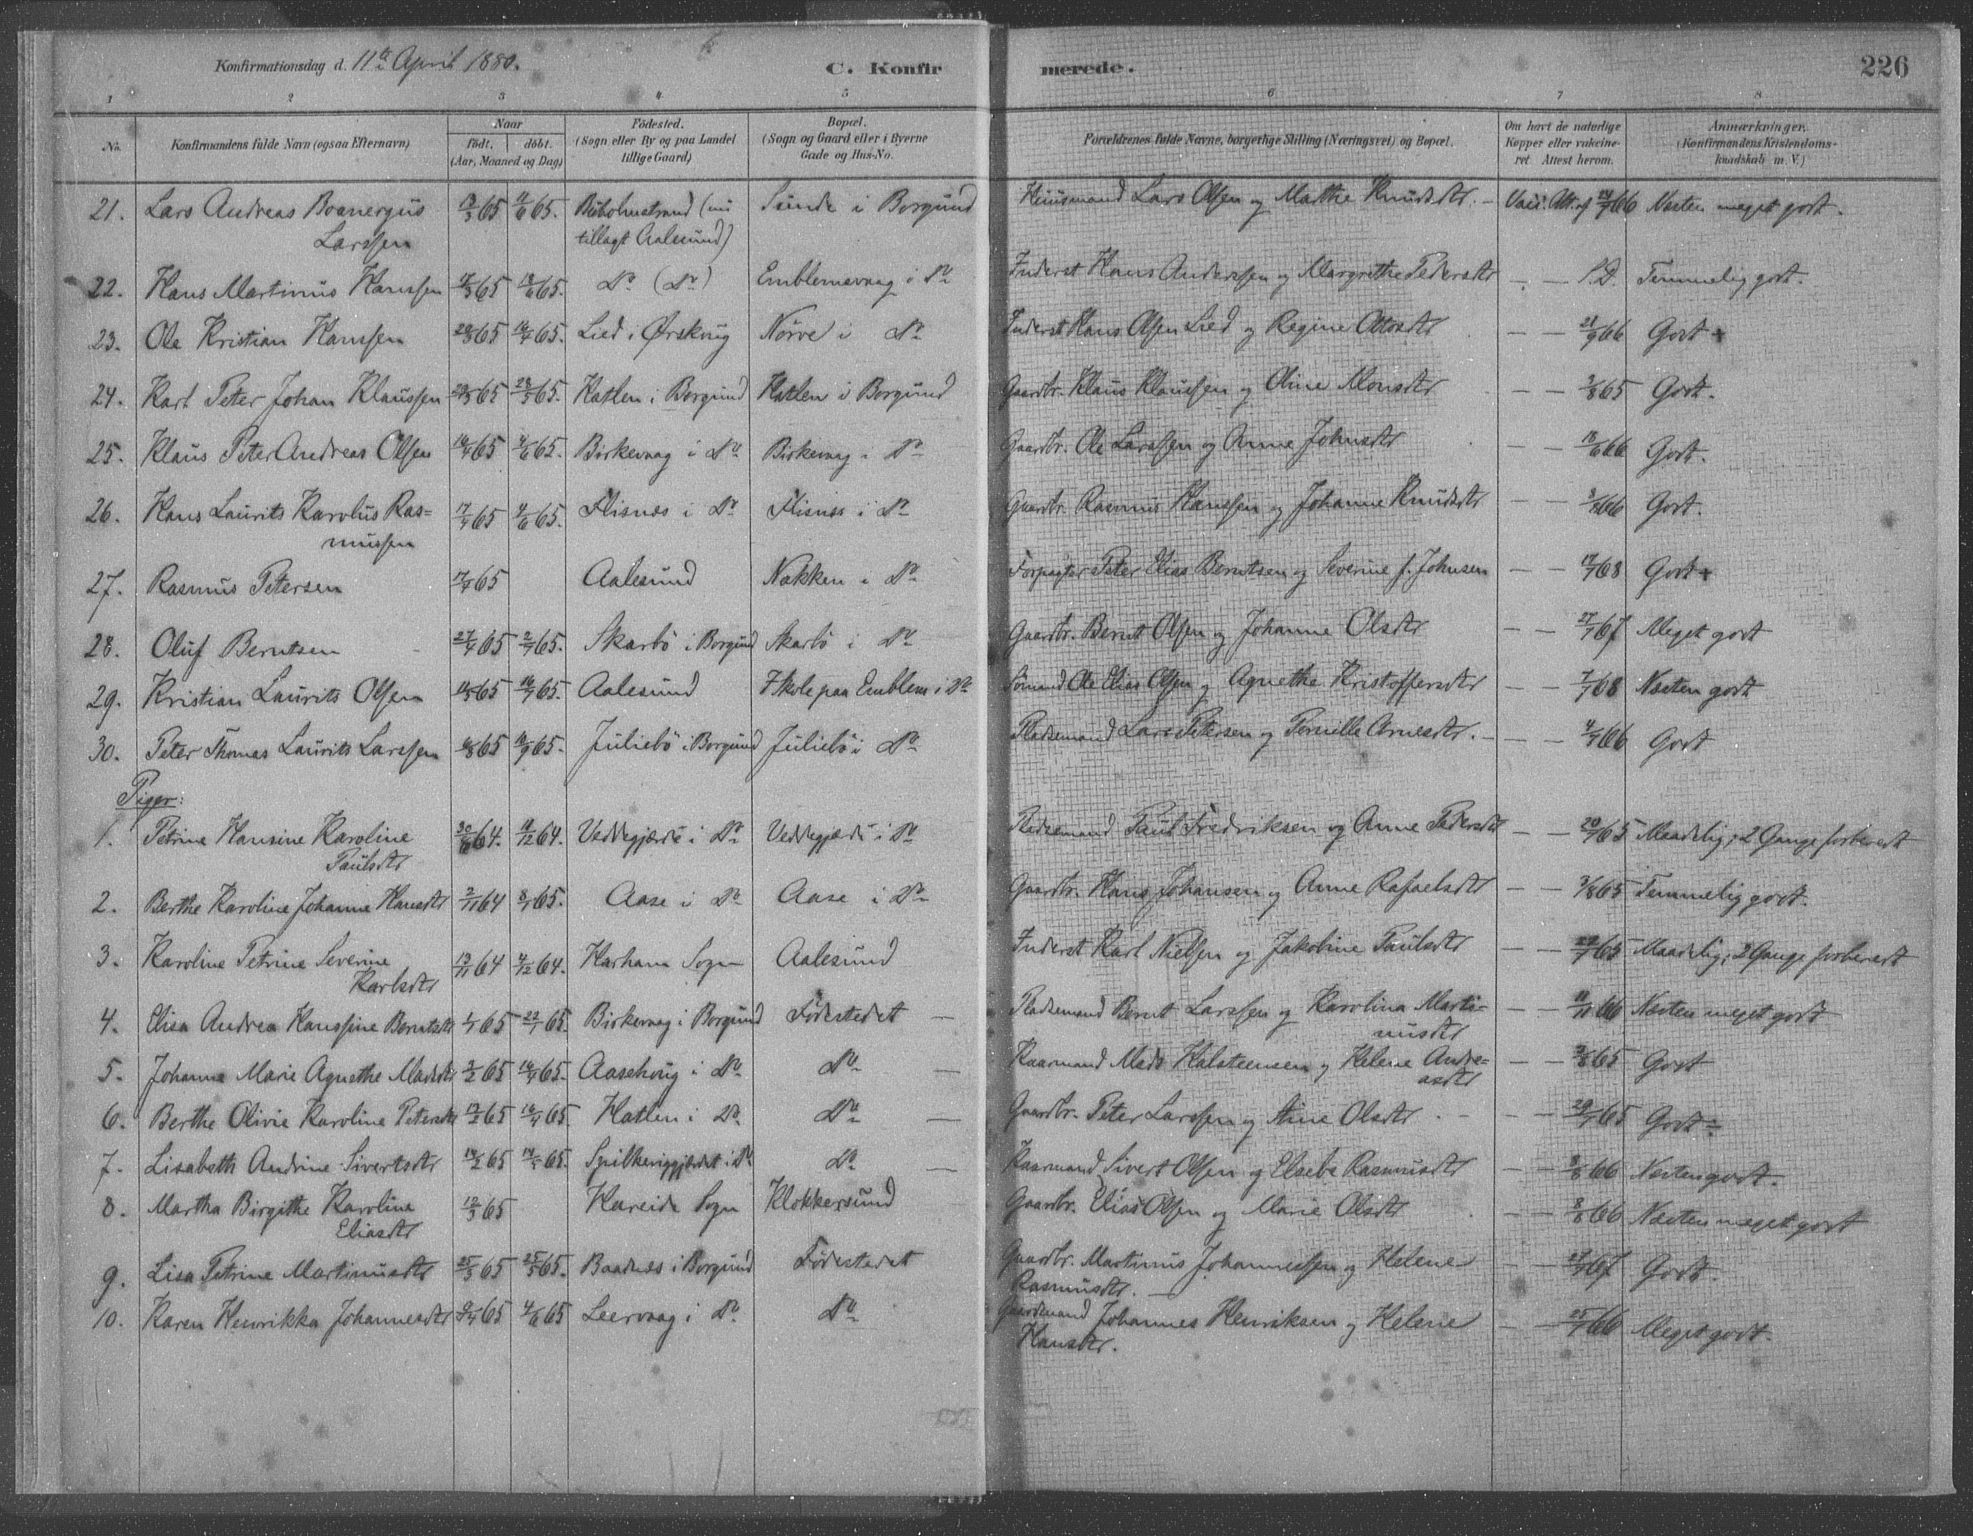 Konfirmationsdag d. 11te April 1880.
C. Konfirmerede.
226
1 2 3 4 5 6 7 8
No. Konfirmandens fulde Navn (ogsaa Efternavn) Naar født, døbt. (Aar, Maaned og Dag) Fødested. (Sogn eller By og paa Landet tillige Gaard) Bopæl. (Sogn og Gaard eller i Byerne Gade og Hus-No. Forældrenes fulde Navne, borgerlige Stilling (Næringsvei) og Bopæl. Om havt de naturlige Kopper eller vakcineret. Attest herom. Anmærkninger. (Konfirmandens Kristendomskundskab m. V.)
21. Lars Andreas Boanergus 65 65. (nu Sunde i Borgund Huusmand Lars Olsen og Marthe Knudsdtr. 66 Næsten meget godt.
Larssen tillagt Aalesund)
22. Hans Martinus Hanssen 65 65. Do (Do) Emblemsvaag i Do Inderst Hans Anderssen og Margrethe Pedersdtr — Temmelig godt.
23. Ole Kristian Hanssen 65 65. Lied i Ørskoug Nørve i Do Inderst Hans Olsen Lied og Regine Ottosdtr — — 21/9 66 Godt
24. Karl Peter Johan Klaussen 65 65. Hatlen i Borgund Hatlen i Borgund Gaardbr. Klaus Klaussen og Oline Monsdtr — — 2/8 65 Godt.
25. Klaus Peter Andreas Olsen 65 65. Birkevaag i Do Birkevaag i Do Gaardbr. Ole Larssen og Anne Johnsdtr — — 66 Godt.
26. Hans Laurits Karolus Ras= 17/4 65 65. Flisnes i Do Flisnes i Do Gaardbr. Rasmus Hanssen og Johanne Knudsdtr — — 66 Godt.
mussen
27. Rasmus Petersen 65 Aalesund Nakken i Do Forpagter Peter Elias Berntsen og Severine f. Johnsen — — 68 Godt
28. Oluf Berntsen 27/4 65 2/7 65. Skarbø i Borgund Skarbø i Do Gaardbr. Bernt Olsen og Johanne Olsdtr — — 67 Meget godt
29. Kristian Laurits Olsen 65 65. Aalesund I Skole paa Emblem i Do Sømand Ole Elias Olsen og Agnethe Kristoffersdtr — — 7/7 68 Næsten godt
30. Peter Thomas Laurits Larssen 65 65. Juliebø i Borgund Juliebø i Do Pladsemand Lars Petersen og Pernille Arnesdtr. — — 66 Godt
Piger:
1. Petrine Hansine Karoline 64. 64. Veddegjærde i Do Veddegjærde i Do Pladsemand Paul Fredriksen og Anne Pedersdtr — — 65 Maadelig; 2 Gange forberedt
Paulsdtr
2. Berthe Karoline Johanne Hansdtr 2/11 64 8/1 65. Aase i Do Aase i Do Gaardbr. Hans Johansen og Anne Rafaelsdtr — — 3/8 65 Temmelig godt.
3. Karoline Petrine Severine 13/11 64 4/12 64. Harham Sogn Aalesund Inderst Karl Nielsen og Jakobine Paulsdtr — — 65 Maadelig; 2 Gange forberedt
Karlsdtr
4. Elisa Andrea Hanssine Berntsdtr 1/1 65 22/1 65. Birkevaag i Borgund Fødestedet — Pladsemand Bernt Larssen og Karolina Marti=
nusdtr — — 66 Næsten meget godt
5. Johanne Marie Agnethe Madsdtr 65 65. Aasehoug i Do Do — Kaarmand Mads Halsteensen og Helene Andre=
asdtr — — 65 Godt
6. Berthe Olivie Karoline Petersdtr 65 65. Hatlen i Do Do — Gaardbr. Peter Larssen og Stine Olsdtr. — — 65 Godt
7. Lisabeth Andrine Sivertsdtr 65 65. Spilkeviggjærdet i Do Do — Kaarmand Sivert Olsen og Elsebe Rasmusdtr — — 66 Næsten godt.
8. Martha Birgithe Karoline 65 Hareide Sogn Klokkersund Gaardbr. Elias Olsen og Marie Olsdtr — — 8/8 66 Næsten meget godt
Eliasdtr
9. Lisa Petrine Martinusdtr 25/3 65 25/5 65. Baadnes i Borgund Fødestedet Gaardbr. Martinus Johannessen og Helene — — 67 Godt.
Rasmusdtr. —
10. Karen Henrikka Johannesdtr 65 4/6 65 Leervaag i Do Do Gaardmand Johannes Henriksen og Helene — — 66 Meget godt.
Hansdtr.